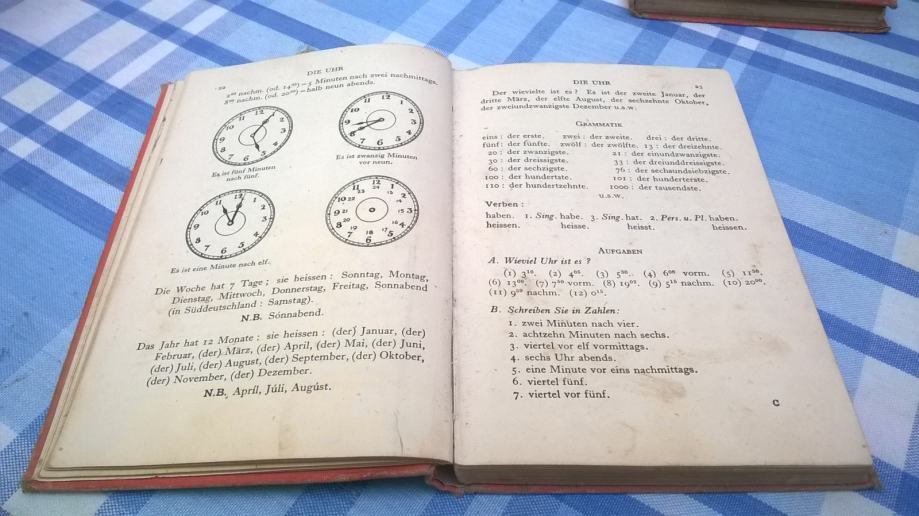 22
DIE UHR
2⁰⁵ nachm. (od. 14⁰⁵) = 5 Minuten nach zwei nachmittags.
8³⁰ nachm. (od. 20³⁰) = halb neun abends.
Es ist fünf Minuten
nach fünf.
Es ist zwanzig Minuten
vor neun.
Es ist eine Minute nach elf.
Die Woche hat 7 Tage; sie heissen: Sonntag, Montag,
Dienstag, Mittwoch, Donnerstag, Freitag, Sonnabend
(in Süddeutschland: Samstag).
N.B. Sónnabend.
Das Jahr hat 12 Monate: sie heissen: (der) Januar, (der)
Februar, (der) März, (der) April, (der) Mai, (der) Juni,
(der) Juli, (der) August, (der) September, (der) Oktober,
(der) November, (der) Dezember.
N.B. Apríl, Júli, Augúst.
DIE UHR
23
Der wievielte ist es? Es ist der zweite Januar, der
dritte März, der elfte August, der sechzehnte Oktober,
der zweiundzwanzigste Dezember u.s.w.
GRAMMATIK
eins: der erste. zwei: der zweite. drei: der dritte.
fünf: der fünfte. zwölf: der zwölfte. 13: der dreizehnte.
20: der zwanzigste. 21: der einundzwanzigste.
30: der dreissigste. 33: der dreiunddreissigste.
60: der sechzigste. 76: der sechsundsiebzigste.
100: der hundertste. 101: der hunderterste.
110: der hundertzehnte. 1000: der tausendste.
u.s.w.
Verben:
haben. 1. Sing. habe. 3. Sing. hat. 2. Pers. u. Pl. haben.
heissen. heisse. heisst. heissen.
AUFGABEN
A. Wieviel Uhr ist es?
(1) 3¹⁰. (2) 4⁰⁵. (3) (4) 6⁰⁰ vorm. (5)
(6) (7) vorm. (8) (9) 5¹⁵ nachm. (10)
(11) nachm. (12) 0¹⁵.
B. Schreiben Sie in Zahlen:
1. zwei Minuten nach vier.
2. achtzehn Minuten nach sechs.
3. viertel vor elf vormittags.
4. sechs Uhr abends.
5. eine Minute vor eins nachmittags.
6. viertel fünf.
7. viertel vor fünf.
C